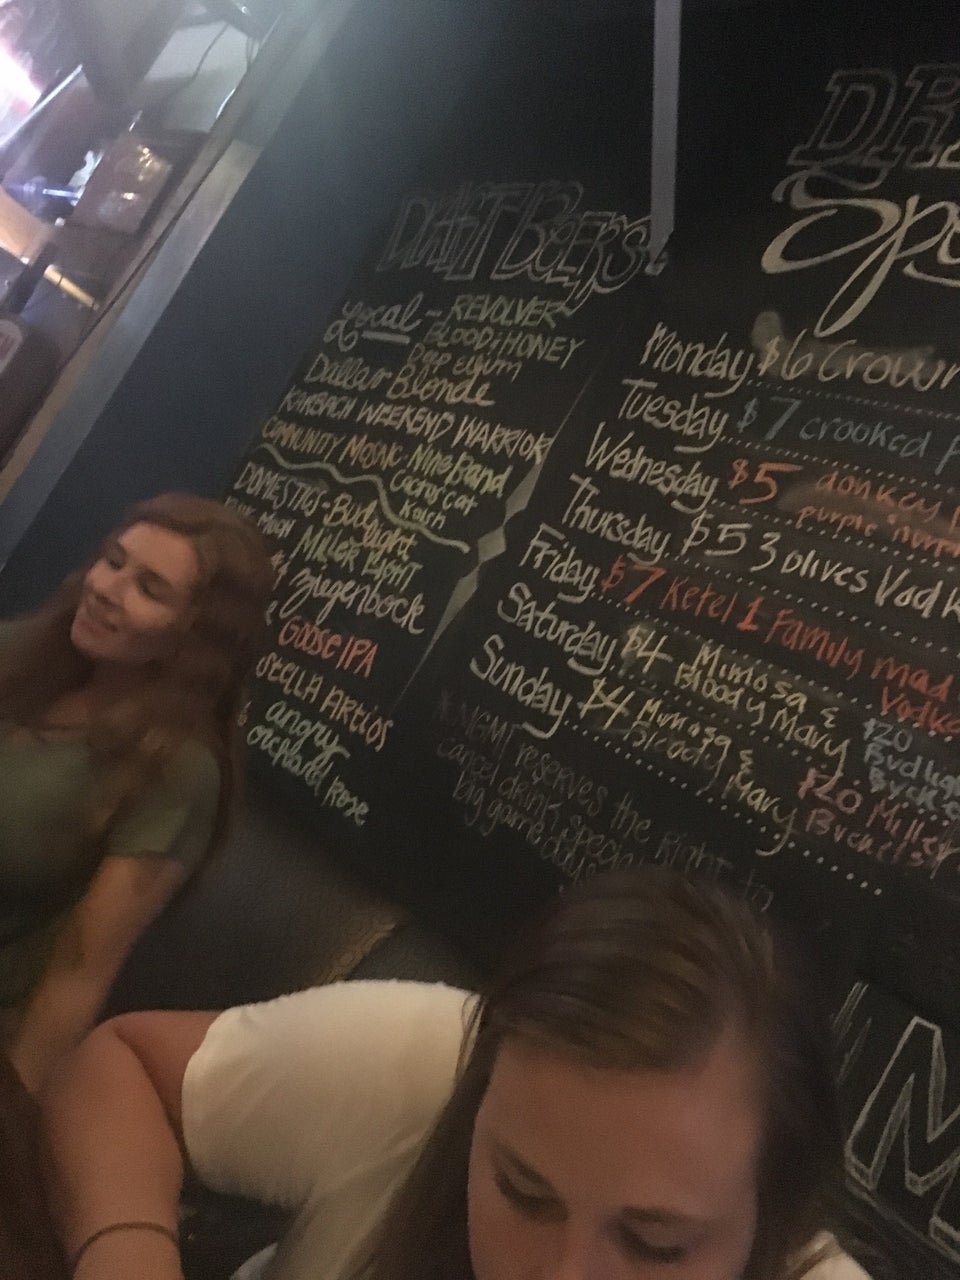 DRAFT BEERS
Local - REVOLVER
BLOOD & HONEY
Deep ellum
Dallas Blonde
KARBACH WEEKEND WARRIOR
COMMUNITY MOSAIC - Nine Band
Cactus Cat
Kolsh
DOMESTICS - Budlight
MILLER LIGHT
Ziegenbock
GOOSE IPA
STELLA ARTIOS
angry
orchard Rose
Monday $6 Crown
Tuesday $7 crooked
Wednesday $5 donkey
purple
Thursday $5 3 olives Vodk
Friday $7 Ketel 1 Family mad
Vodka
Saturday $4 Mimosa &
Bloody Mary
$20
Budlig
Sunday $4 Mimosa &
bloody Mary
$20 Mille
Buckets
MGMT reserves the Right to
cancel drink special
big game days
M